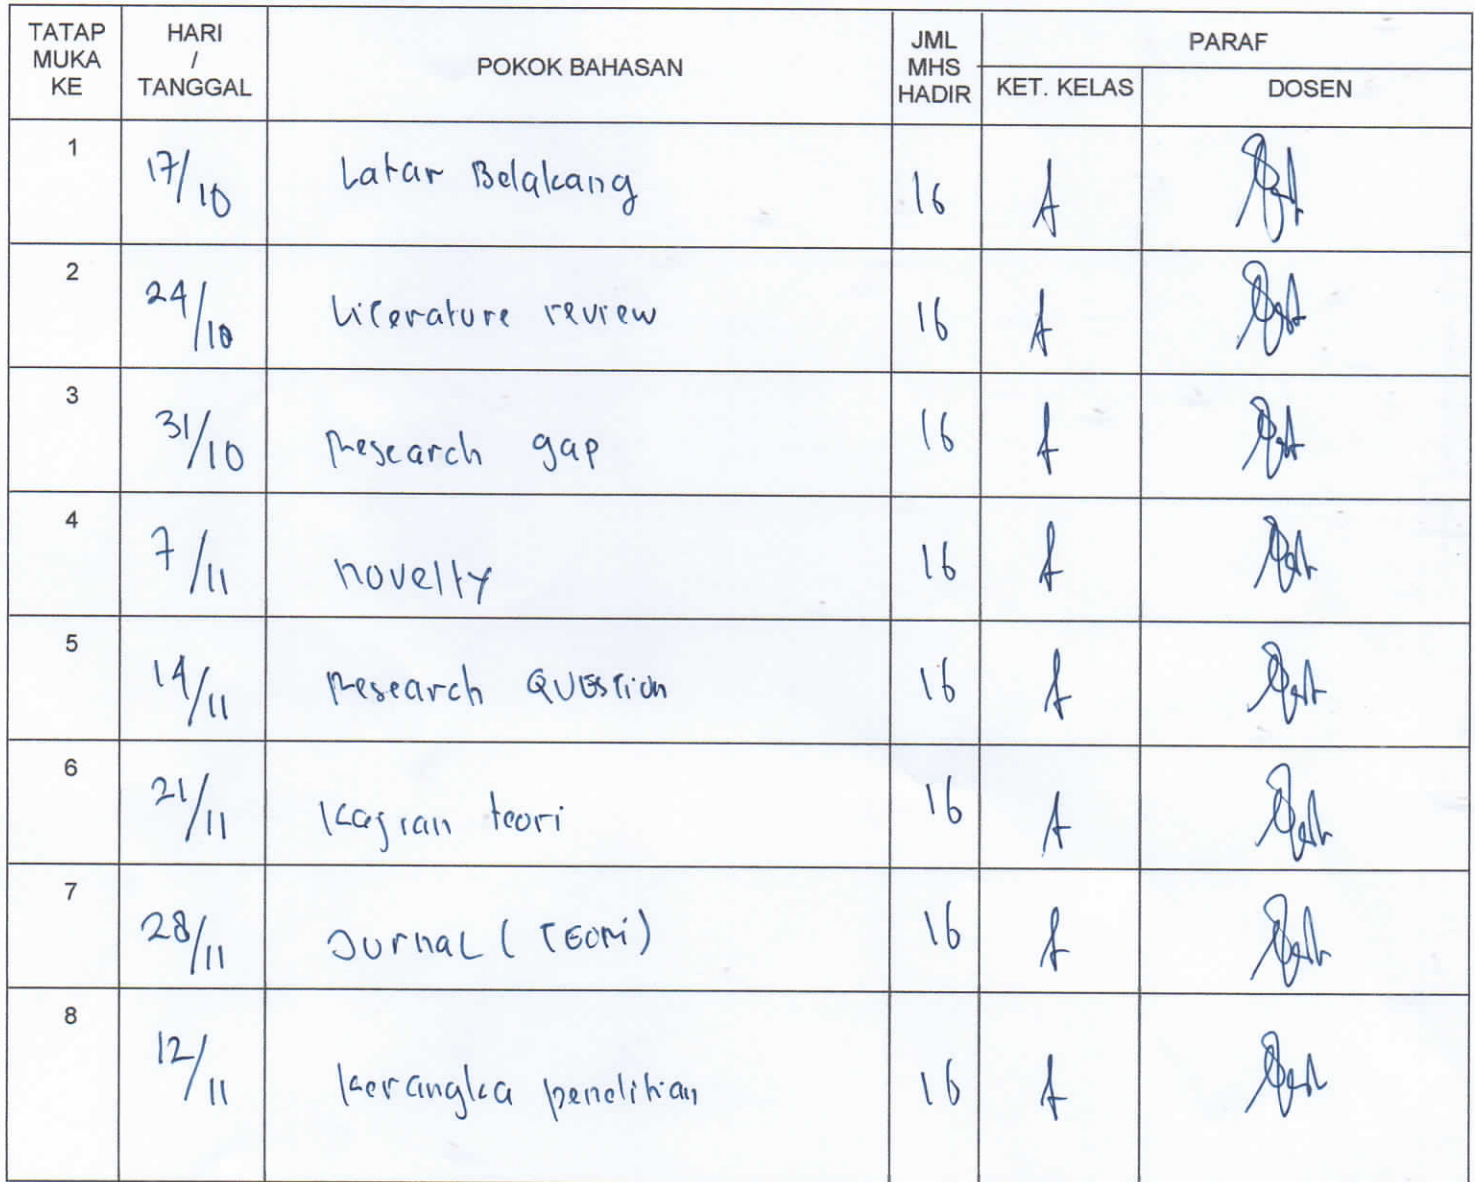 TATAP MUKA KE HARI / TANGGAL POKOK BAHASAN JML MHS HADIR PARAF
KET. KELAS DOSEN
1 17/10 Latar Belakang 16
2 24/10 Literature review 16
3 31/10 Research gap 16
4 7/11 novelty 16
5 14/11 Research QUESTion 16
6 21/11 Kajian teori 16
7 28/11 JurnaL (TEORi) 16
8 12/11 kerangka penelitian 16